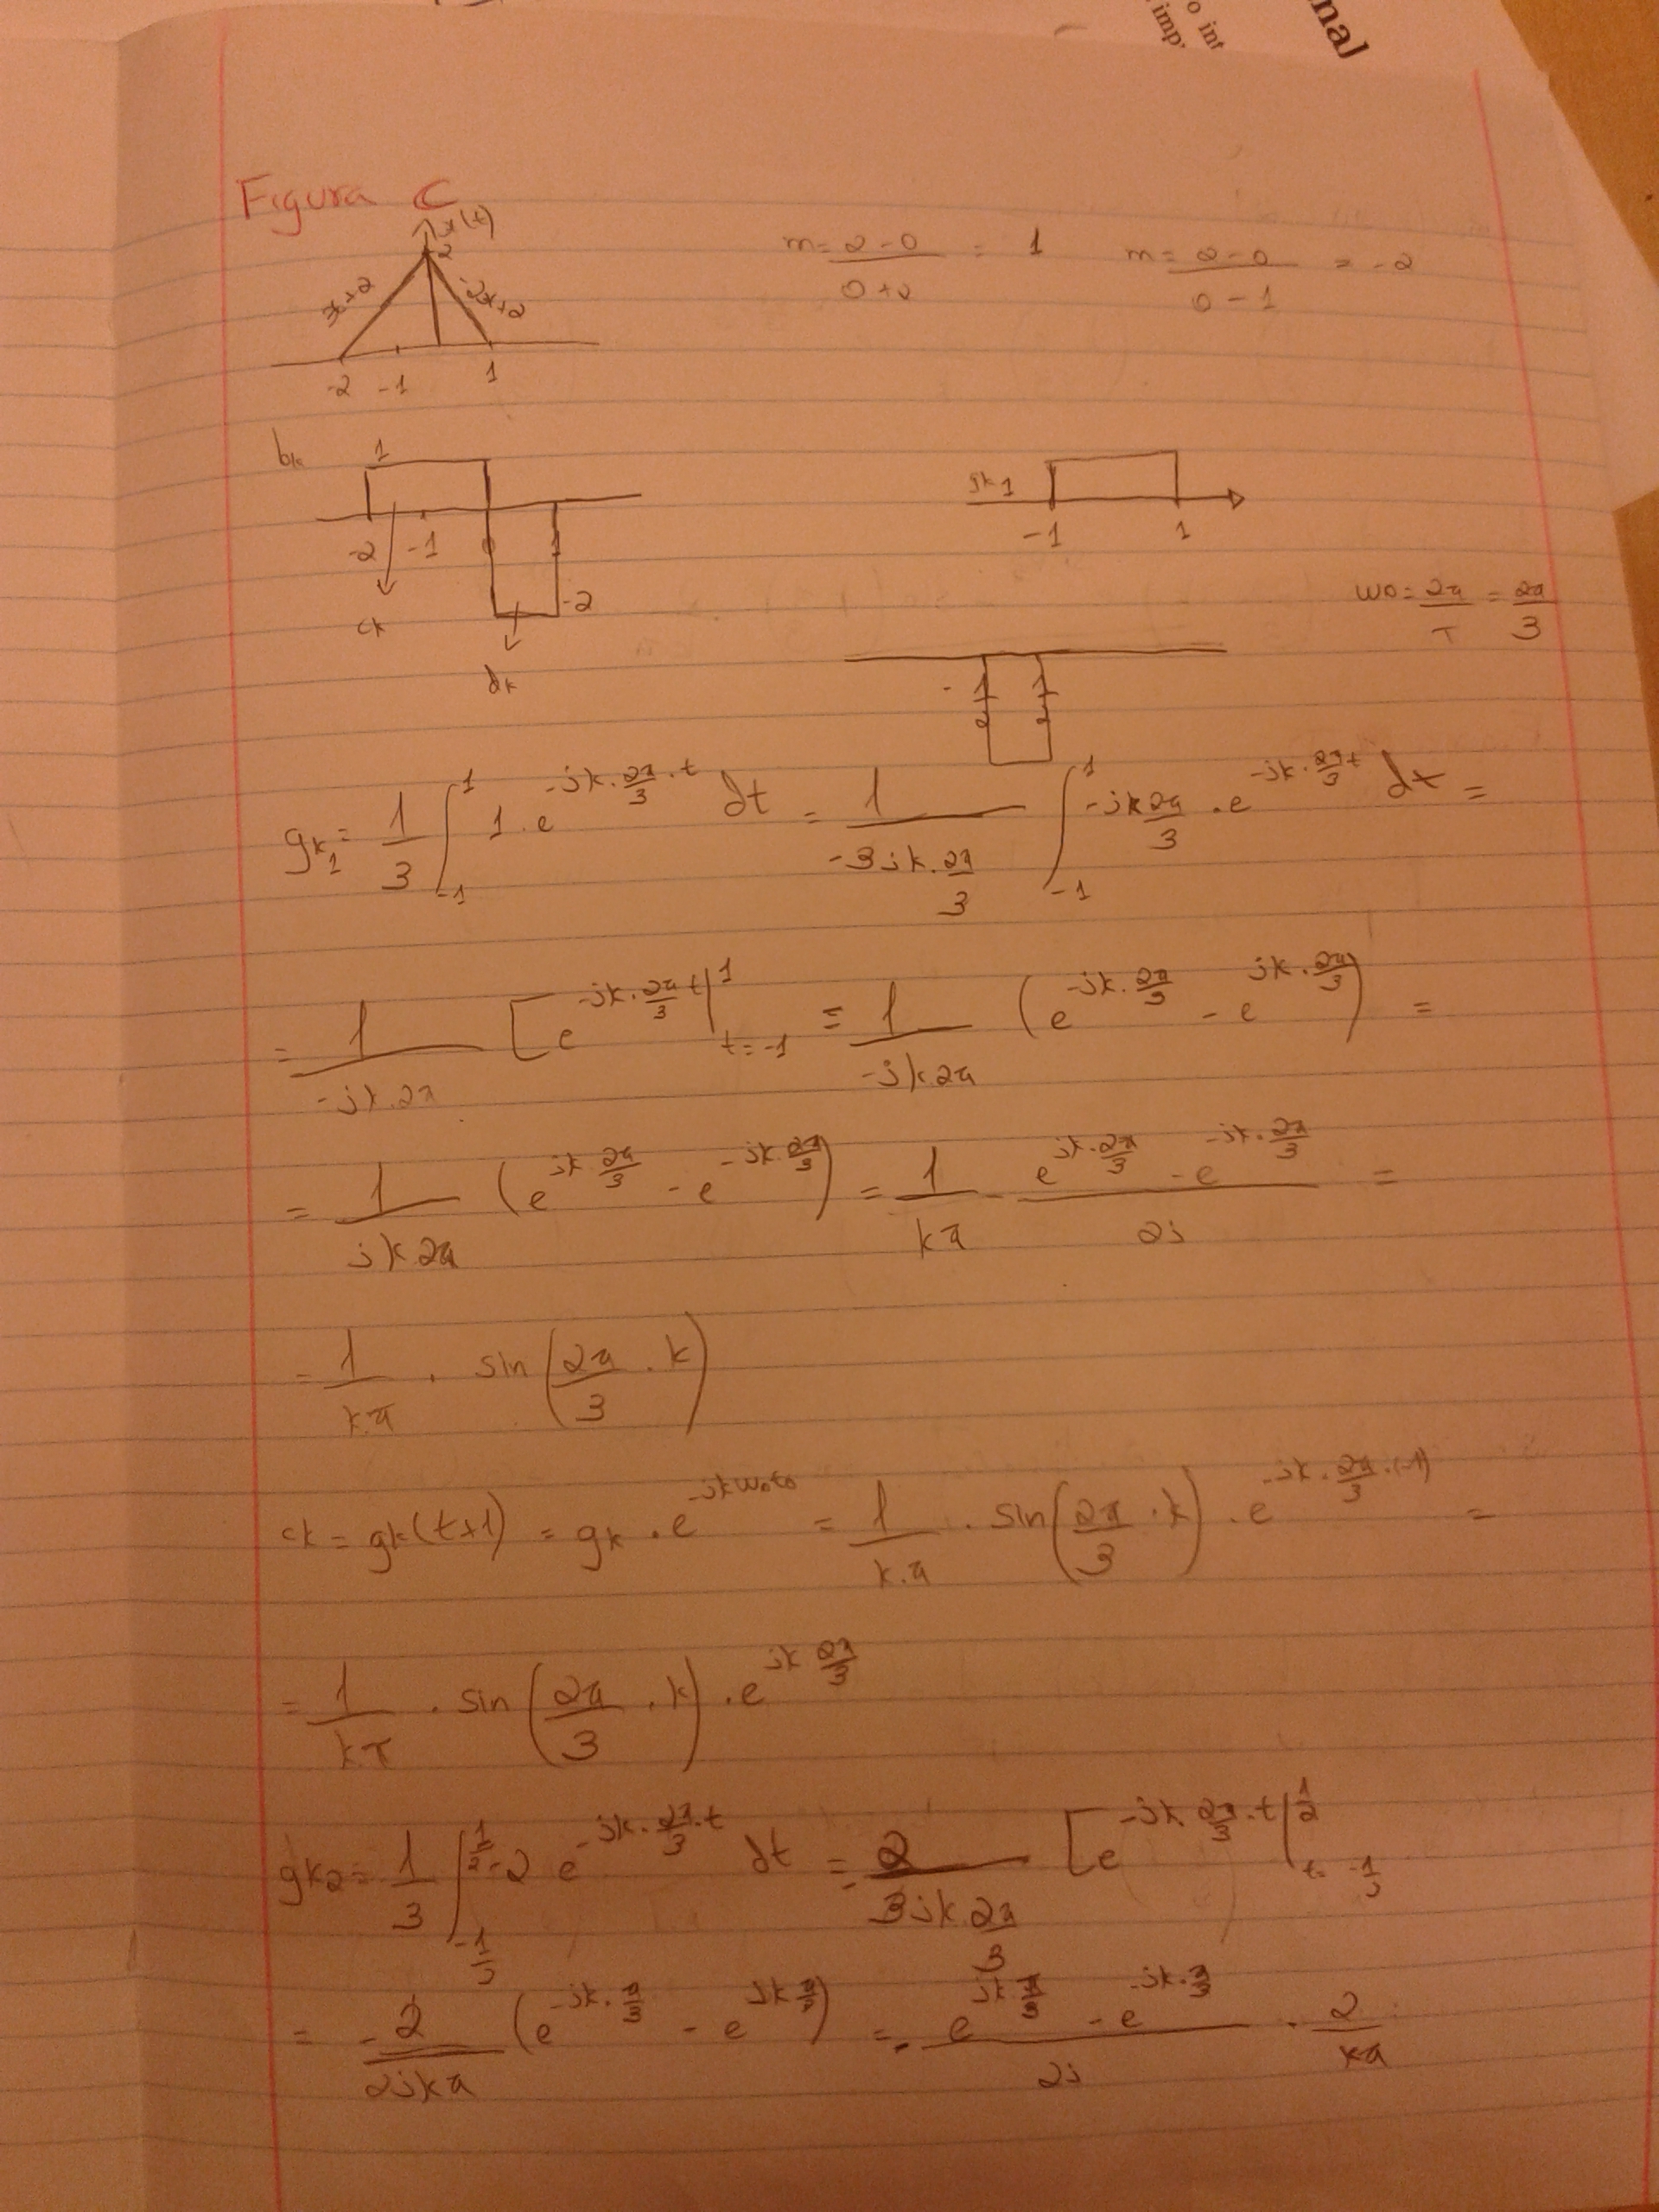 nal
o int
imp
Figura C
x(t)
2
x+2
-2x+2
-2 -1 1
m = (2-0)/(0+2) = 1 m = (2-0)/(0-1) = -2
bk 1
-2 -1 0 1
-2
ck
dk
gk1
-1 1
w0 = 2π/T = 2π/3
-1/2 1/2
gk1 = 1/3 ∫_{-1}^{1} 1 · e^{-jk·2π/3·t} dt = 1/(-3jk·2π/3) ∫_{-1}^{1} -jk2π/3 · e^{-jk·2π/3 t} dt =
= 1/(-jk·2π) [e^{-jk·2π/3 t}|_{t=-1}^{1} = 1/(-jk2π) (e^{-jk·2π/3} - e^{jk·2π/3}) =
= 1/(jk2π) (e^{jk 2π/3} - e^{-jk·2π/3}) = 1/(kπ) · (e^{jk·2π/3} - e^{-jk·2π/3})/(2j) =
= 1/(k·π) · sin(2π/3 · k)
ck = gk(t+1) = gk · e^{-jkw0t0} = 1/(k·π) · sin(2π/3 · k) · e^{-jk·2π/3·(-1)} =
= 1/(kπ) · sin(2π/3 · k) · e^{jk 2π/3}
gk2 = 1/3 ∫_{-1/2}^{1/2} -2 e^{-jk·2π/3·t} dt = 2/(3jk·2π/3) [e^{-jk·2π/3·t}|_{t=-1/2}^{1/2}
= -2/(2jkπ) (e^{-jk·π/3} - e^{jkπ/3}) = - (e^{jk·π/3} - e^{-jk·π/3})/(2j) · 2/(kπ)